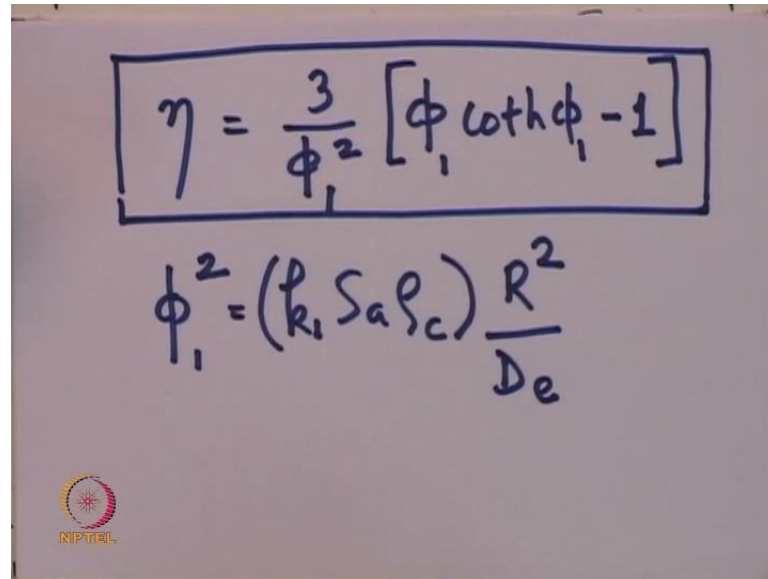 η = 3/ϕ₁² [ϕ₁ coth ϕ₁ - 1]
ϕ₁² = (k₁ Sₐ ρ_c) R²/Dₑ
NPTEL